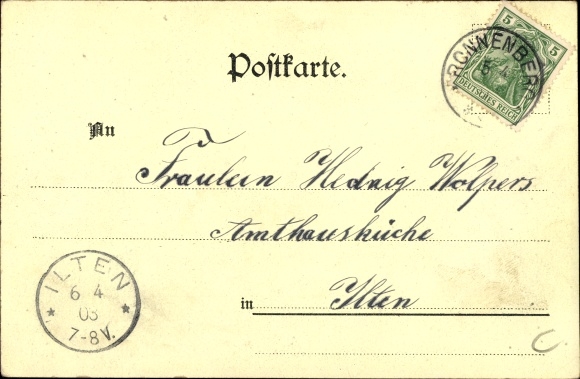 5 5
RONNENBERG
5 4
DEUTSCHES REICH
Postkarte.
An
Fräulein Hedwig Wolpers
Amthausküche
in Ilten
ILTEN
6 4
03
7-8V.